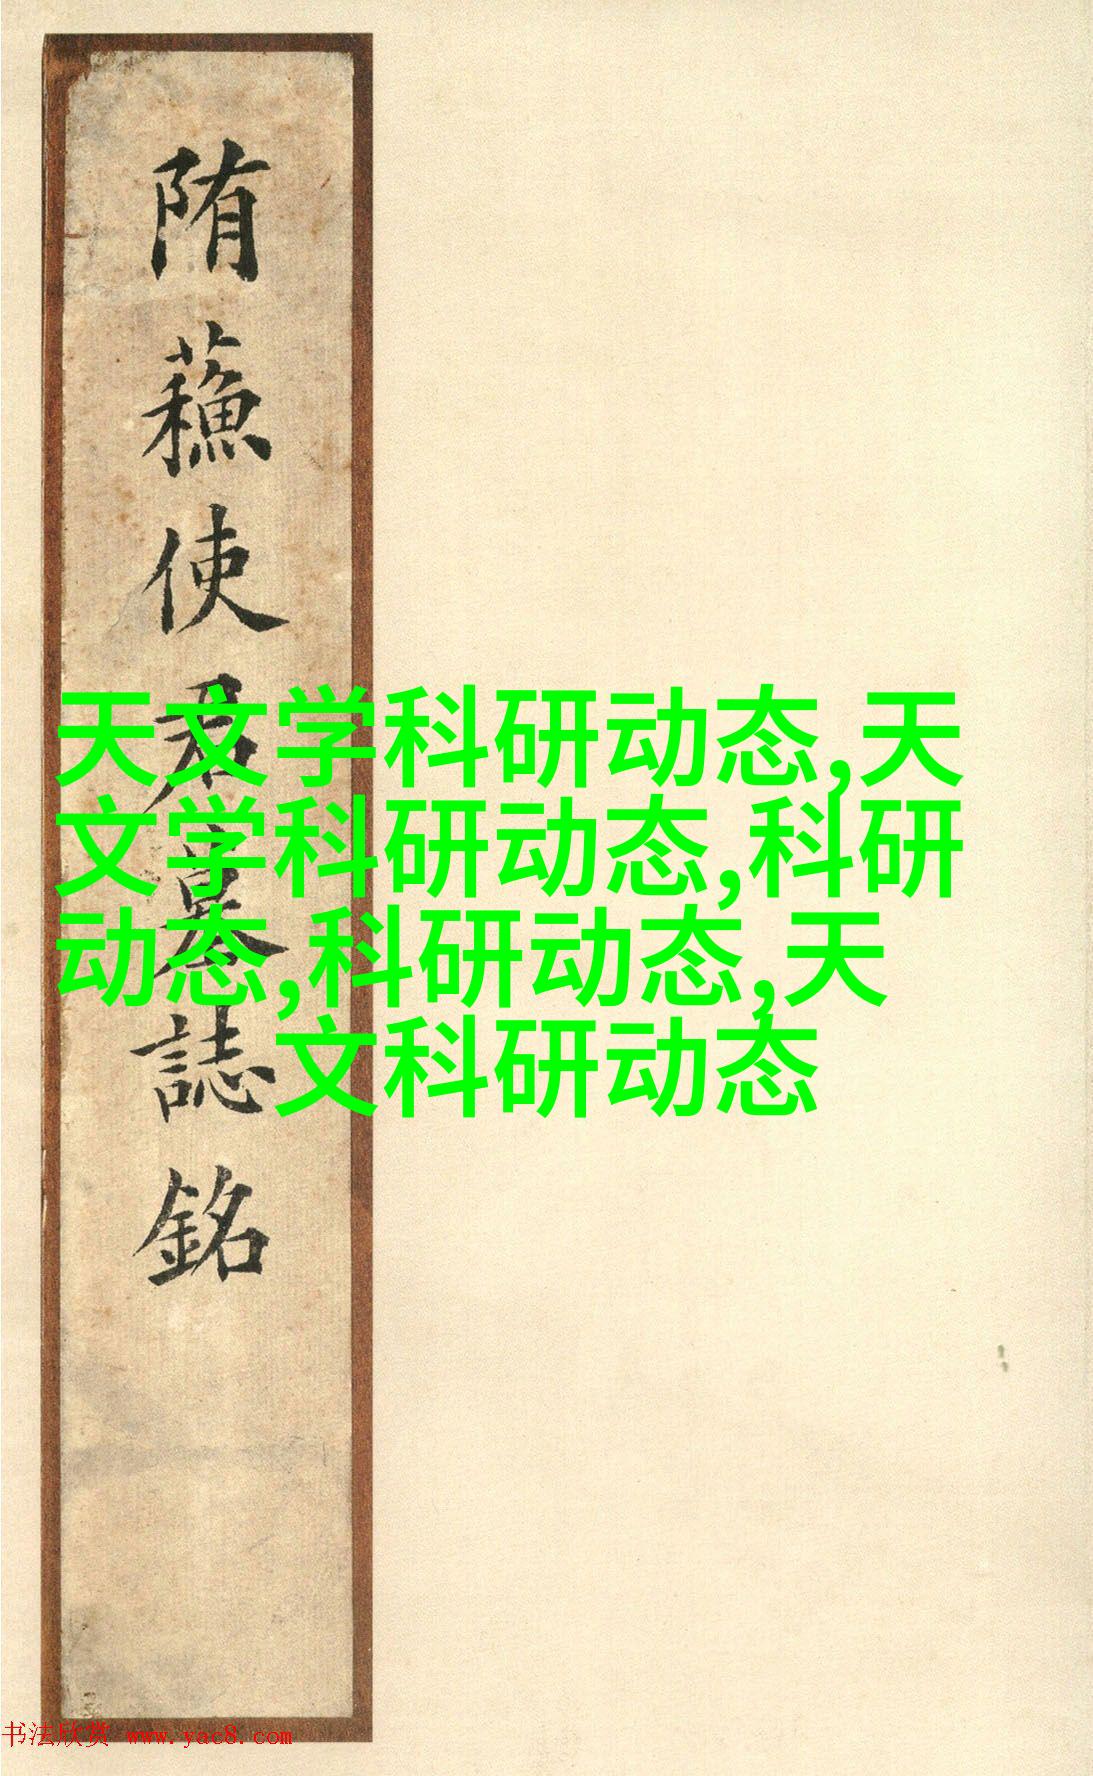 隋蘓使君墓誌銘
天文学科研动态,天
文学科研动态,科研
动态,科研动态,天
文科研动态
书法欣赏 www.yac8.com